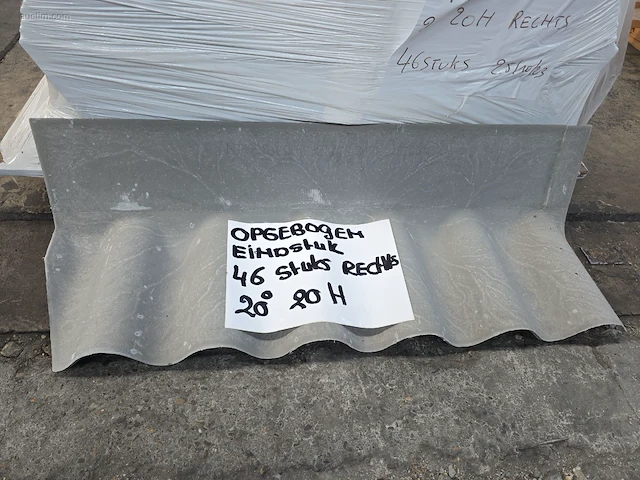 auctim.com
20H RECHTS
46 STUKS 2 stuks
OPGEBOGEN
EINDSTUK
46 STUKS RECHTS
20° 20 H